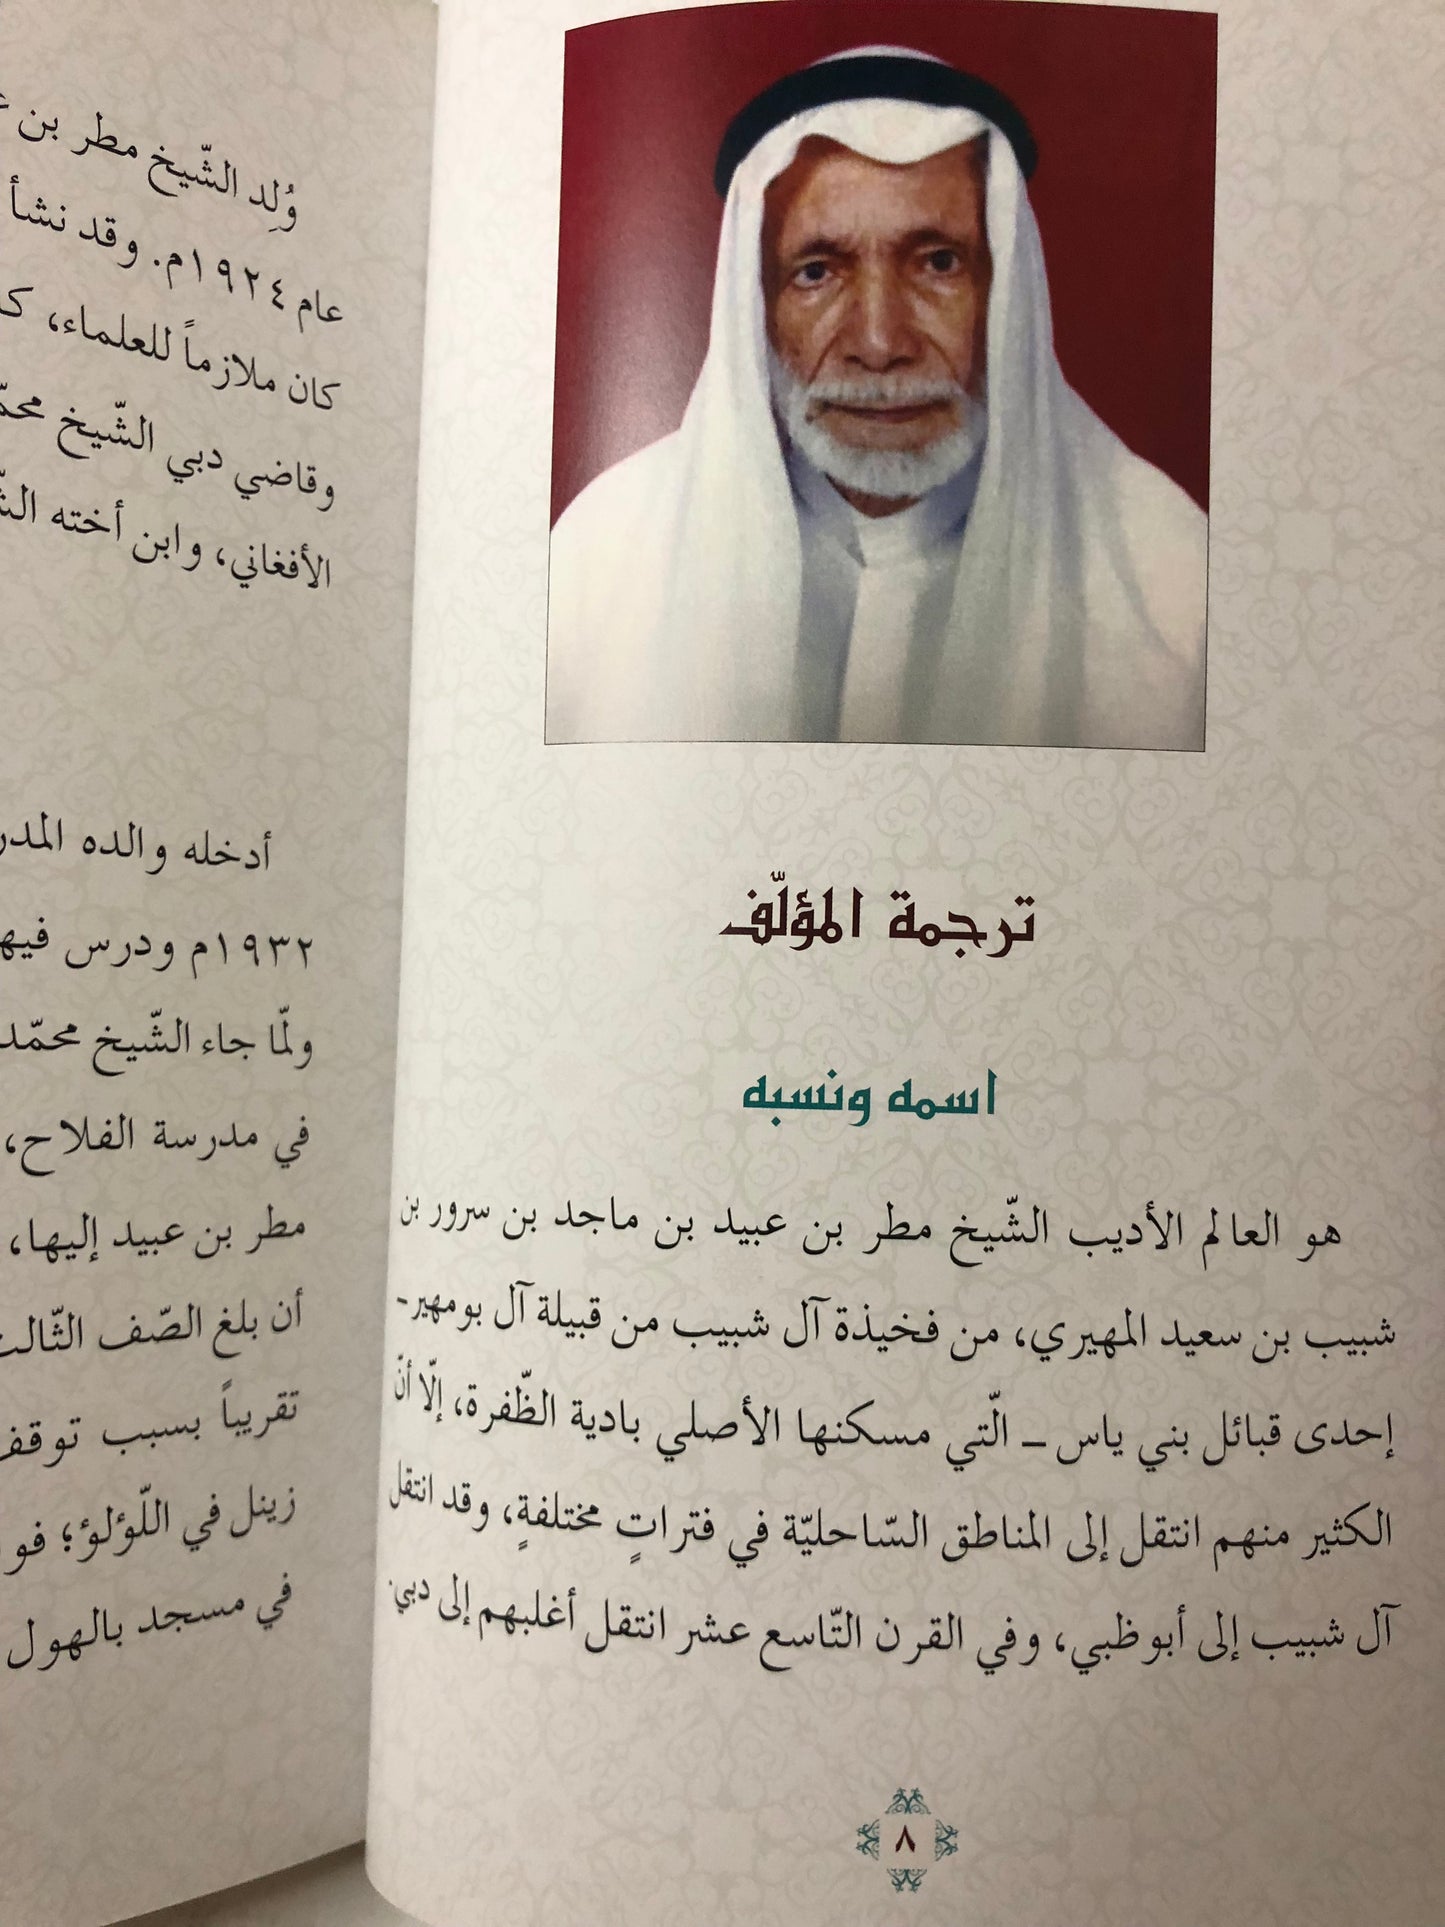 ترجمة المؤلّف
اسمه ونسبه
هو العالم الأديب الشّيخ مطر بن عبيد بن ماجد بن سرور بن
شبيب بن سعيد المهيري، من فخيذة آل شبيب من قبيلة آل بومهير-
إحدى قبائل بني ياس – الّتي مسكنها الأصلي بادية الظّفرة، إلّا أنّ
الكثير منهم انتقل إلى المناطق السّاحليّة في فتراتٍ مختلفةٍ، وقد انتقل
آل شبيب إلى أبوظبي، وفي القرن التّاسع عشر انتقل أغلبهم إلى دبي.
٨
وُلِد الشّيخ مطر بن
عام ١٩٢٤م. وقد نشأ
كان ملازماً للعلماء،
وقاضي دبي الشّيخ
الأفغاني، وابن أخته
أدخله والده
١٩٣٢م ودرس فيها
ولمّا جاء الشّيخ محمّد
في مدرسة الفلاح،
مطر بن عبيد إليها،
أن بلغ الصّف الثّالث
تقريباً بسبب توقف
زينل في اللّؤلؤ؛
في مسجد بالهول